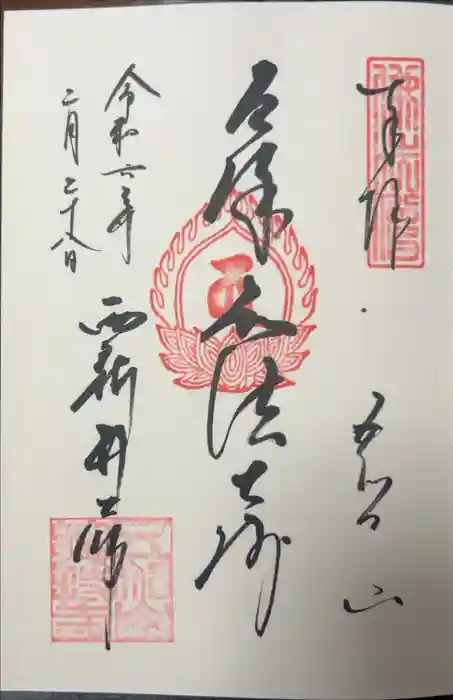 奉拝
五智山
厄除弘法大師
西新井大師
令和六年
二月二十八日